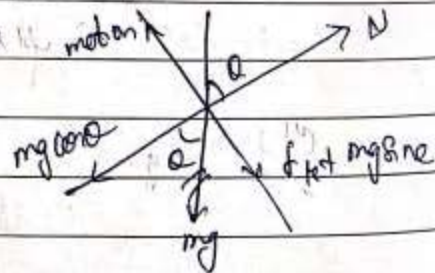 motion
N
θ
mg cosθ
θ
mg sinθ
mg